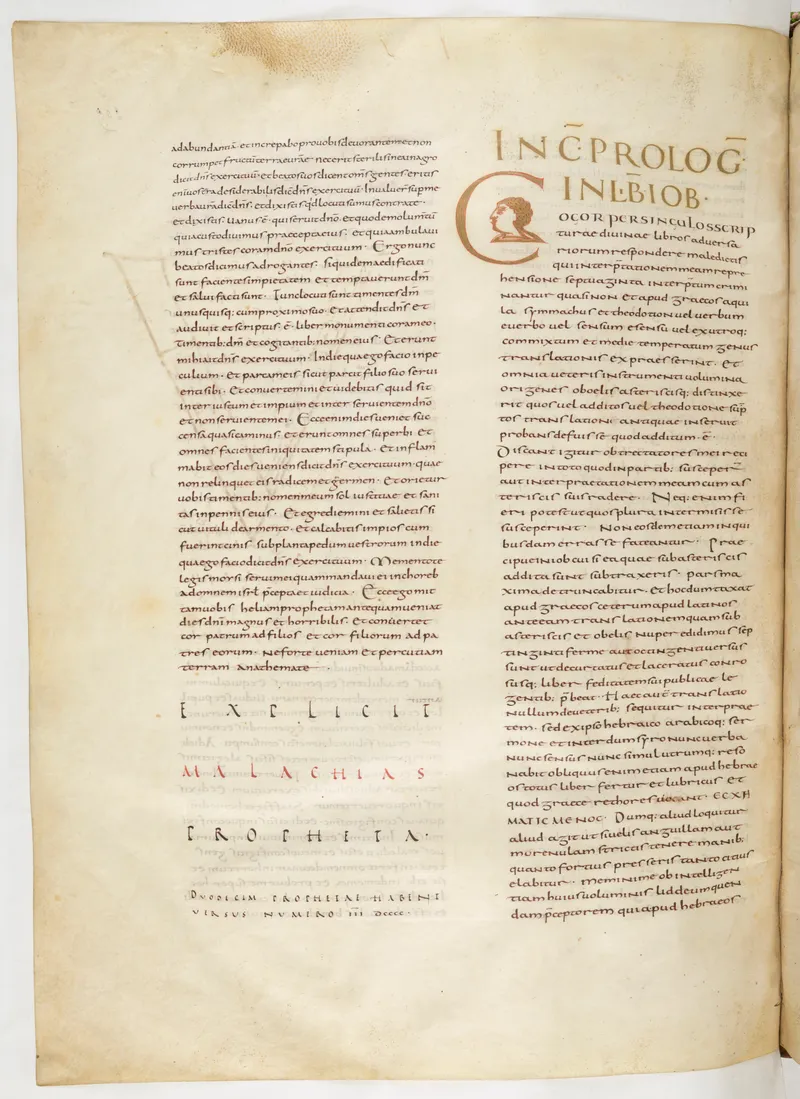 adabundantiā· et increpabo prouobis deuorantem et non
corrumpet fructū terrae uræ· nec erit sterilis uinea in agro
dicit dn̄s exercituū· et beatos uos dicent om̄s gentes eritis
enī uos terra desiderabilis dic̄ dn̄s exercituū· Inualuer̄ sup me
uerba ura dic̄ dn̄s· et dixistis qd̄ locuti sumus contra te·
et dixistis uanus ē· qui seruit dn̄o· et quod emolumtū
quia custodiuimus praecepta eius· et quia ambulaui
mus tristes coram dn̄o exercituum· Ergo nunc
beatos dicimus adrogantes· siquidem aedificati
sunt facientes impietatem et temptauerunt dm̄
et salui facti sunt· Tunc locuti sunt timentes dm̄
unusquisq: cum proximo suo· Et attendit dn̄s et
audiuit et scriptus ·ē· liber monumenti coram eo·
timentib: dm̄ et cogitantib: nomen eius· Et erunt
mihi ait dn̄s exercituum· In die qua ego facio in pe
culium· Et parcam eis sicut parcit filio suo serui
enti sibi· Et conuertemini et uidebitis quid sit
inter iustum et impium et inter seruientem dn̄o
et non seruientem ei· Ecce enim dies ueniet suc
censa quasi caminus· et erunt omnes superbi et
omnes facientes iniquitatem stipula· et inflam
mabit eos dies ueniens dicit dn̄s exercituum· quae
non relinquet eis radicem et germen· Et orietur
uobis timentib: nomen meum sol iustitiae et sani
tas in pennis eius· Et egrediemini et salietis si
cut uituli de armento· et calcabitis impios cum
fuerint cinis sub planta pedum uestrorum in die
qua ego facio dicit dn̄s exercituum· Mementote
legis morsi serui mei quam mandaui ei in choreb
ad omnem isrl̄ p̄cepta et iudicia· Ecce ego mit
tam uobis heliam prophetam antequam ueniat
dies dn̄i magnus et horribilis· Et conuertet
cor patrum ad filios et cor filiorum ad pa
tres eorum· ne forte ueniam et percutiam
terram anathemate·
EXPLICIT
MALACHIAS
PROPHETA·
DUODECIM PROPHETAE HABENT
VERSUS NUMERO III DCCCC·
INC̄· PROLOḠ·
IN LIB̄ IOB·
COGOR PER SINGULOS SCRIP
turae diuinae libros aduersa
riorum respondere maledictis
qui interp̄tationem meam repre
hensionē septuaginta interptum crimi
nantur quasi non et apud graecos aqui
la symmachus et theodotion uel uerbum
e uerbo uel sensum e sensū uel ex utroq:
commixtum et medie temperatum genus
translationis expraesserint· Et
omnia ueteris instrumenti uolumina
origenes obelis asteriscisq: distinxe
rit quos uel additos uel theodotione sup
tos translationi antiquae inseruit
probans defuisse quod additum ·ē·
Discant igitur obtrectatores mei reci
pere in toto quod in partib: susceper̄
aut interpraetationem meam cum as
teriscis suis radere· Neq: enim fi
eri potest ut quos plura intermisisse
susceperint· Non eosdem etiam in qui
busdam errasse fateantur· Prae
cipue in iob cui si ea quae sub asteriscis
addita sunt subtraxeris· pars ma
xima detruncabitur· Et hoc dumtaxat
apud graecos ceterum apud latinos
ante eam translationem quam sub
asteriscis et obelis nuper edidimus sep
tinginti ferme aut octingenti uersus
sunt ut decurtatus et laceratus conro
susq: liber feditatem sui publicae le
gentib: p̄beat· Haec aut̄ translatio
nullum de ueterib: sequitur interprae
tem· sed ex ipso hebraico arabicoq: ser
mone et interdum syro nunc uerba
nunc sensus nunc simul utrumq: reso
nabit obliquus enim etiam apud hebrae
os totus liber fertur et lubricus et
quod graece rethores uocant· ECXH
MATICMENOC· Dumq: aliud loquitur
aliud agit ut si uelis anguillam aut
morenulam strictis tenere manib:
quanto fortius presseris tanto citius
elabitur· memini me ob intelligen
tiam huius uoluminis liddeum quen
dam p̄ceptorem qui apud hebraeos